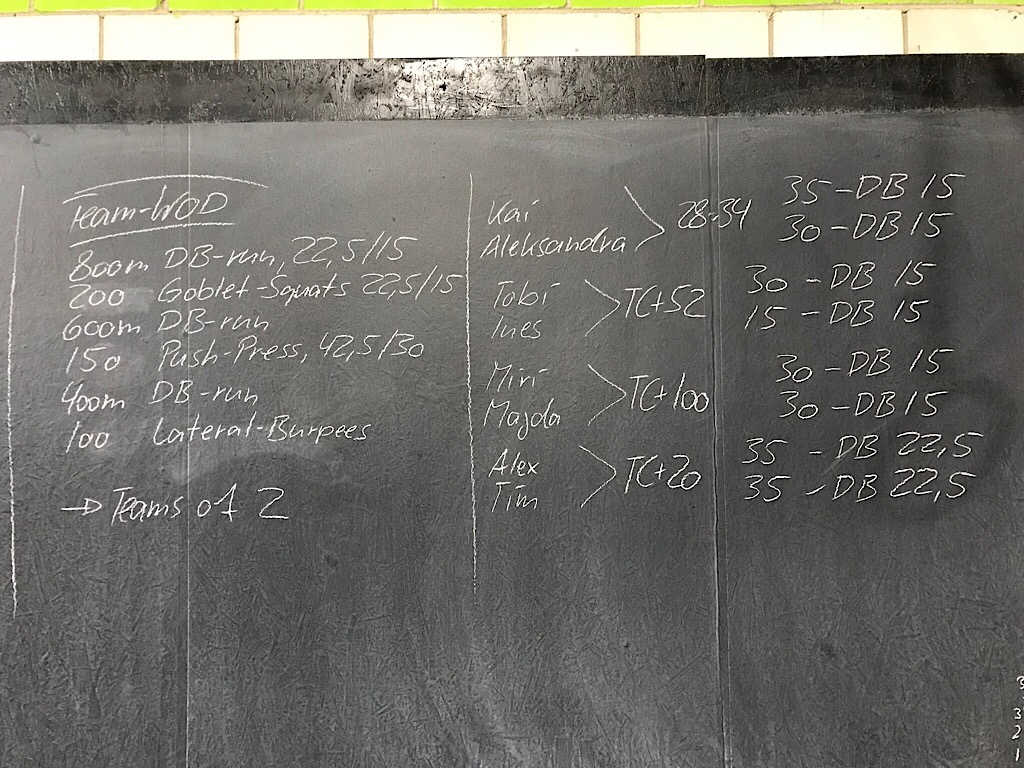 Team-WOD
800m DB-run, 22,5/15
200 Goblet-Squats 22,5/15
600m DB-run
150 Push-Press, 42,5/30
400m DB-run
100 Lateral-Burpees
→ Teams of 2
Kai
Aleksandra
28:34
35-DB 15
30-DB 15
Tobi
Ines
TC+52
30 - DB 15
15 - DB 15
Miri
Magda
TC+100
30-DB 15
30-DB 15
Alex
Tim
TC+20
35 - DB 22,5
35 - DB 22,5
3
3
2
1